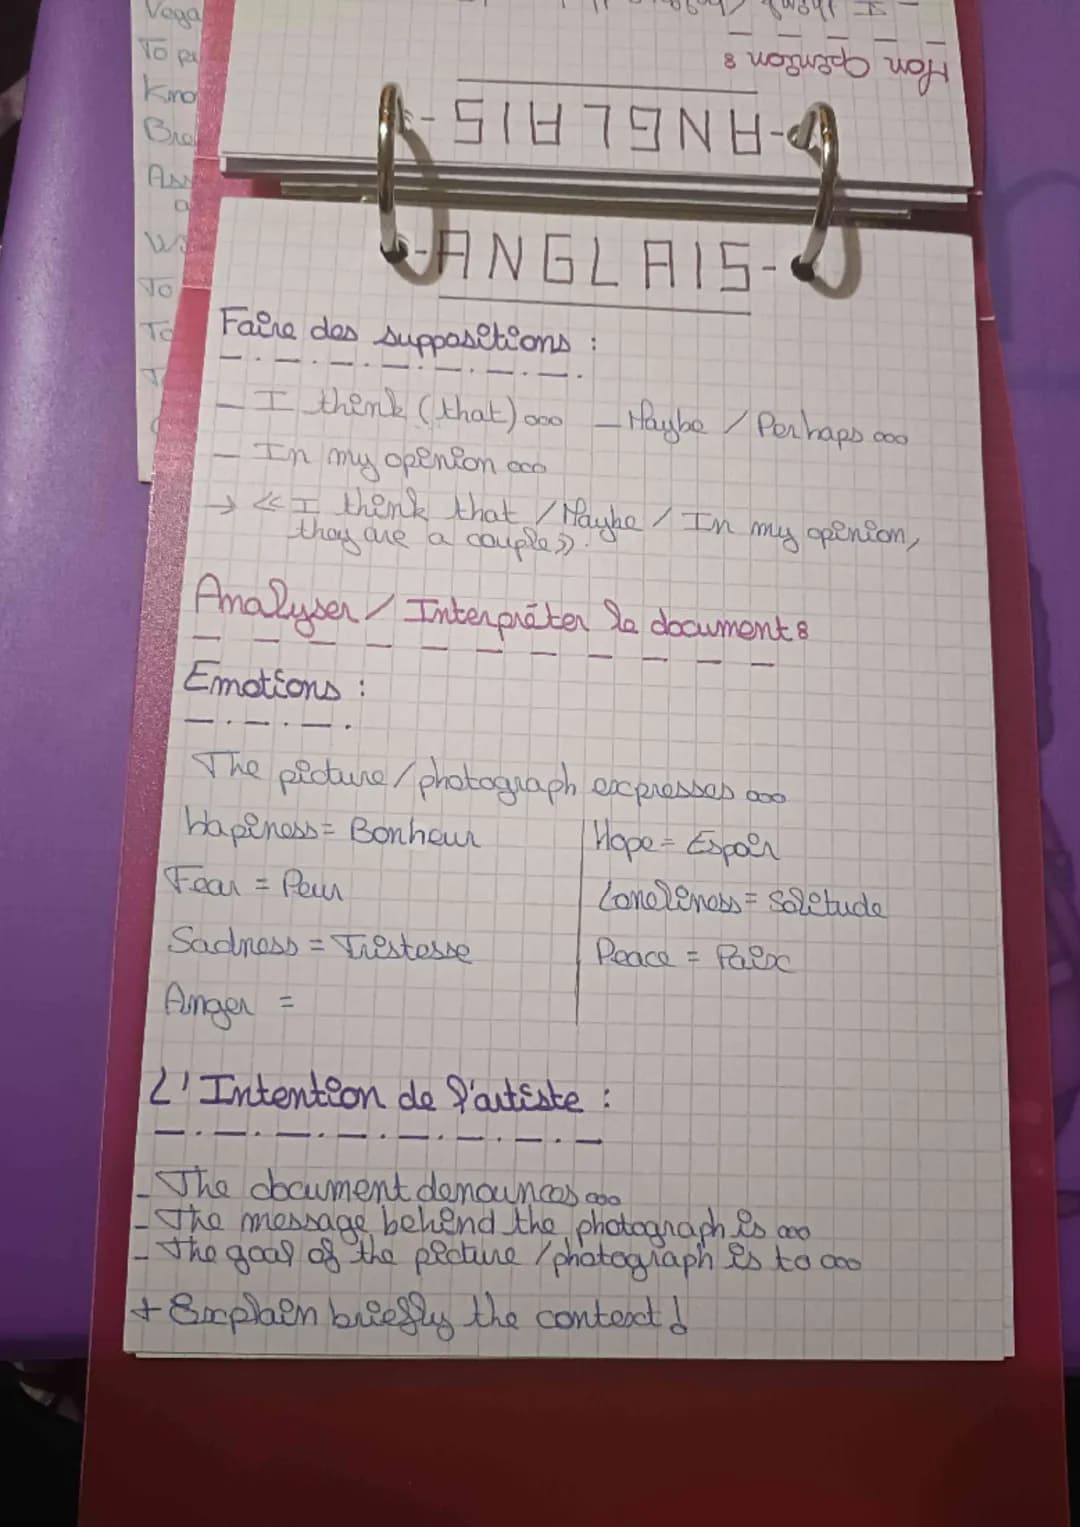 Vega
To
Kno
Bre
Ass
a
To
To
Mon Opinion :
-ANGLAIS-
-ANGLAIS-
Faire des suppositions :
- I think (that)... - Maybe / Perhaps...
- In my opinion...
→ « I think that / Maybe / In my opinion,
they are a couple ».
Analyser / Interpréter le document :
Emotions :
The picture / photograph expresses...
Hapiness = Bonheur
Hope = Espoir
Fear = Peur
Loneliness = Solitude
Sadness = Tristesse
Peace = Paix
Anger =
L'Intention de l'artiste :
- The document denounces...
- The message behind the photograph is...
- The goal of the picture / photograph is to...
+ Explain briefly the context !